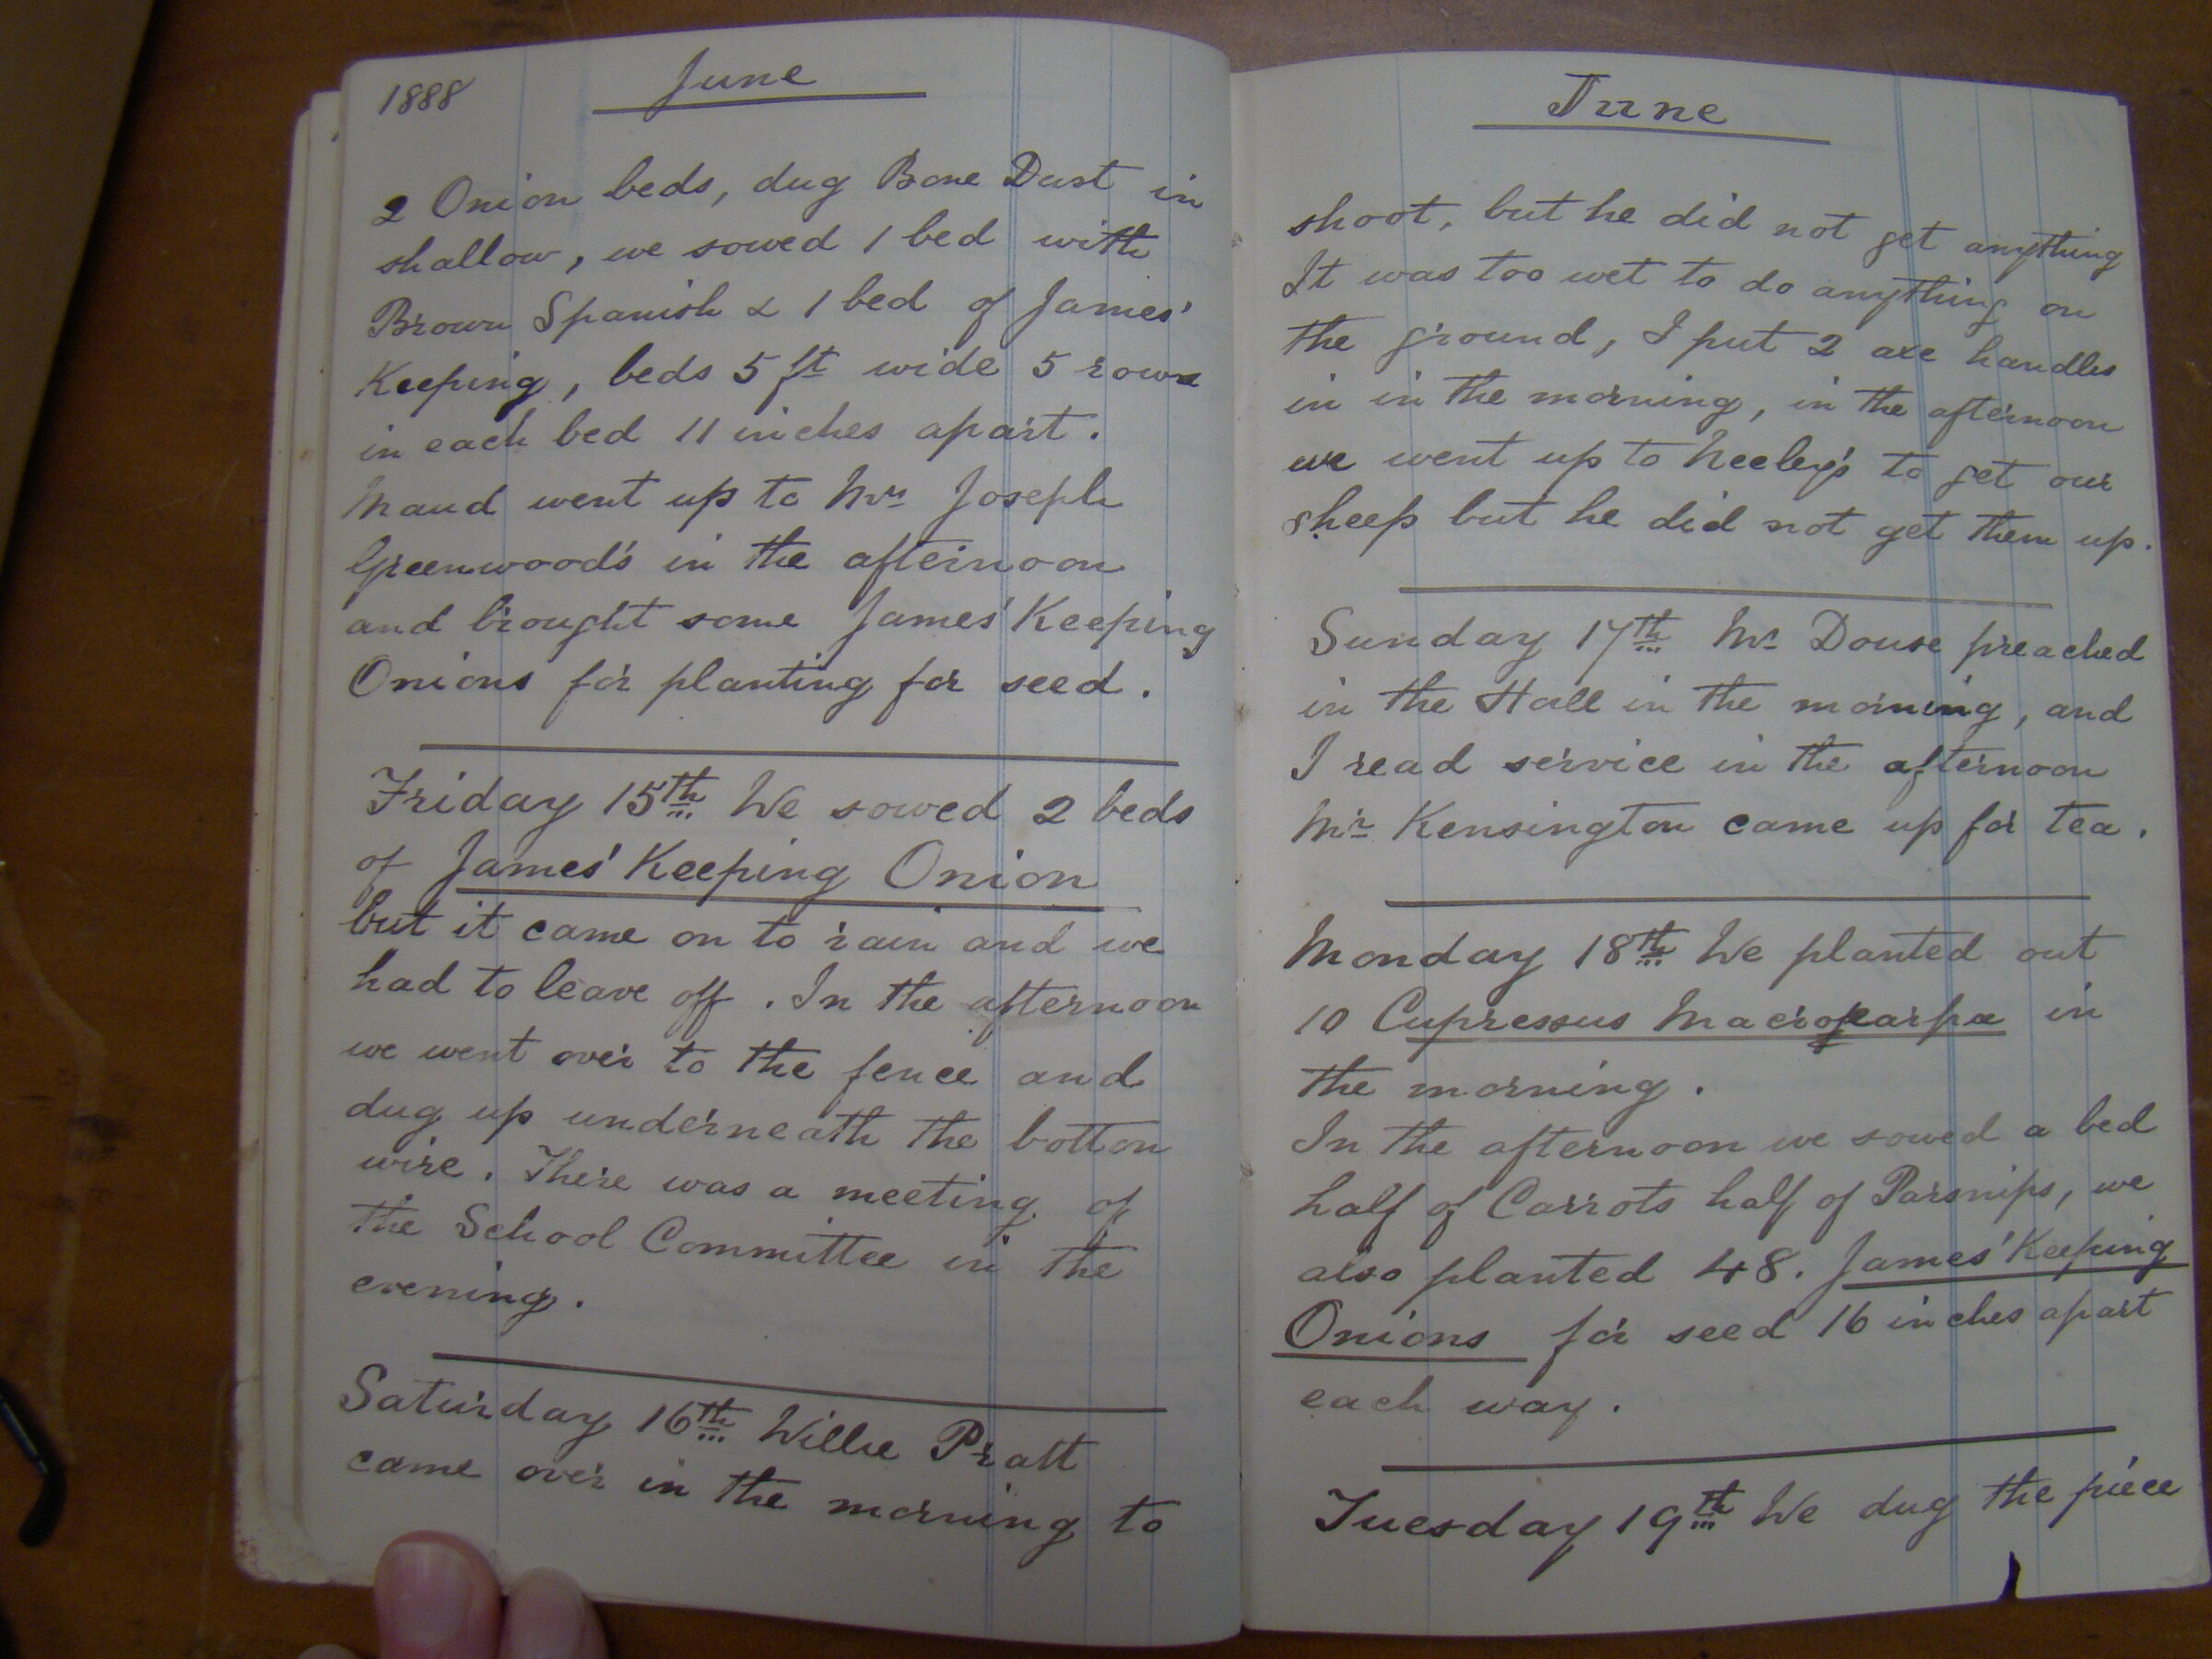 1888 June
2 Onion beds, dug Bone Dust in
shallow, we sowed 1 bed with
Brown Spanish & 1 bed of James'
Keeping, beds 5 ft wide 5 rows
in each bed 11 inches apart.
Maud went up to Mrs Joseph
Greenwood's in the afternoon
and brought some James' Keeping
Onions for planting for seed.
Friday 15th We sowed 2 beds
of James' Keeping Onion
but it came on to rain and we
had to leave off. In the afternoon
we went over to the fence and
dug up underneath the botton
wire. There was a meeting of
the School Committee in the
evening.
Saturday 16th Willie Pratt
came over in the morning to
June
shoot, but he did not get anything
It was too wet to do anything on
the ground, I put 2 axe handles
in in the morning, in the afternoon
we went up to Neeley's to get our
sheep but he did not get them up.
Sunday 17th Mr Douse preached
in the Hall in the morning, and
I read service in the afternoon
Mr Kensington came up for tea.
Monday 18th We planted out
10 Cupressus Macrocarpa in
the morning.
In the afternoon we sowed a bed
half of Carrots half of Parsnips, we
also planted 48. James' Keeping
Onions for seed 16 inches apart
each way.
Tuesday 19th We dug the piece